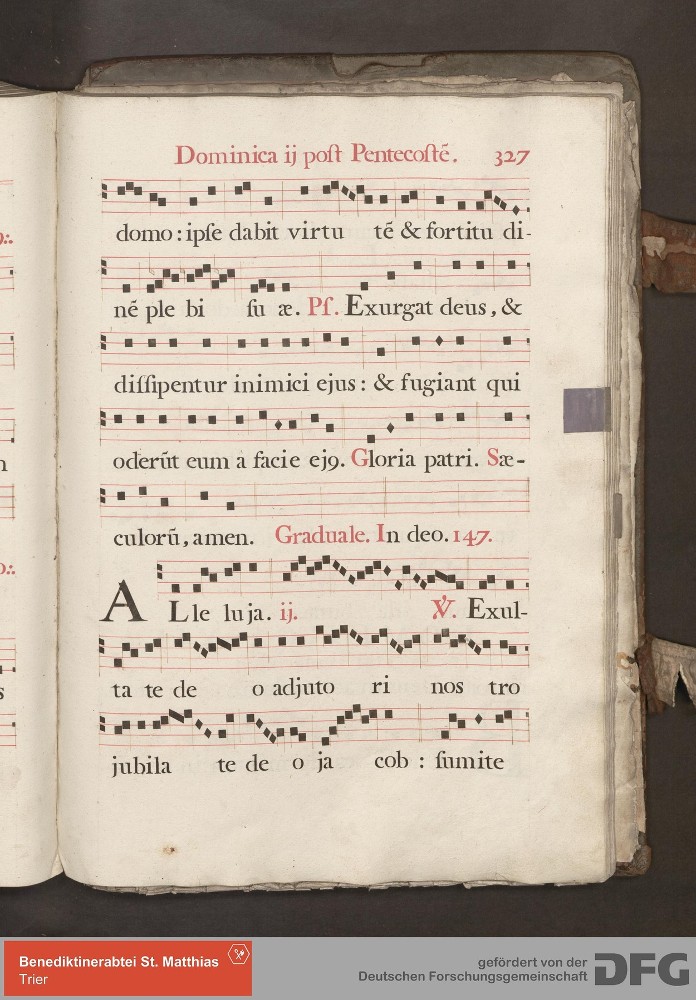 Dominica ij poſt Pentecoſtē. 327
domo : ipſe dabit virtu tē & fortitu di-
nē ple bi ſu æ. Pſ. Exurgat deus, &
diſſipentur inimici ejus : & fugiant qui
oderūt eum a facie ej9. Gloria patri. Sæ-
culorū, amen. Graduale. In deo. 147.
ALle luja. ij. ℣. Exul-
ta te de o adjuto ri nos tro
jubila te de o ja cob : ſumite
Benediktinerabtei St. Matthias
Trier
gefördert von der
Deutschen Forschungsgemeinschaft DFG